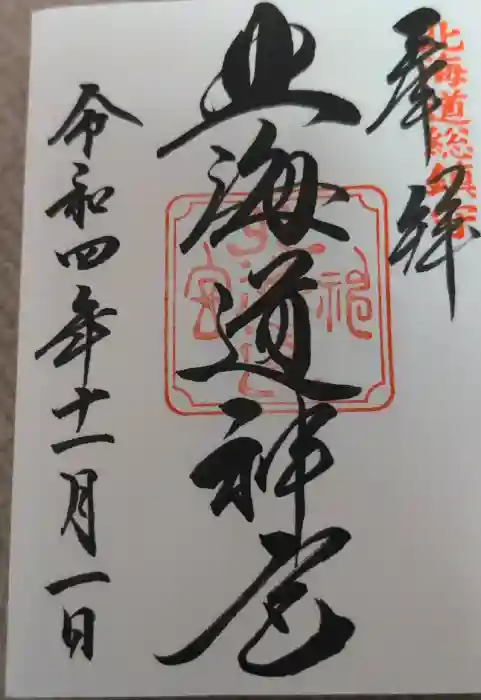 奉拝
北海道総鎮守
北海道神宮
令和四年十一月一日